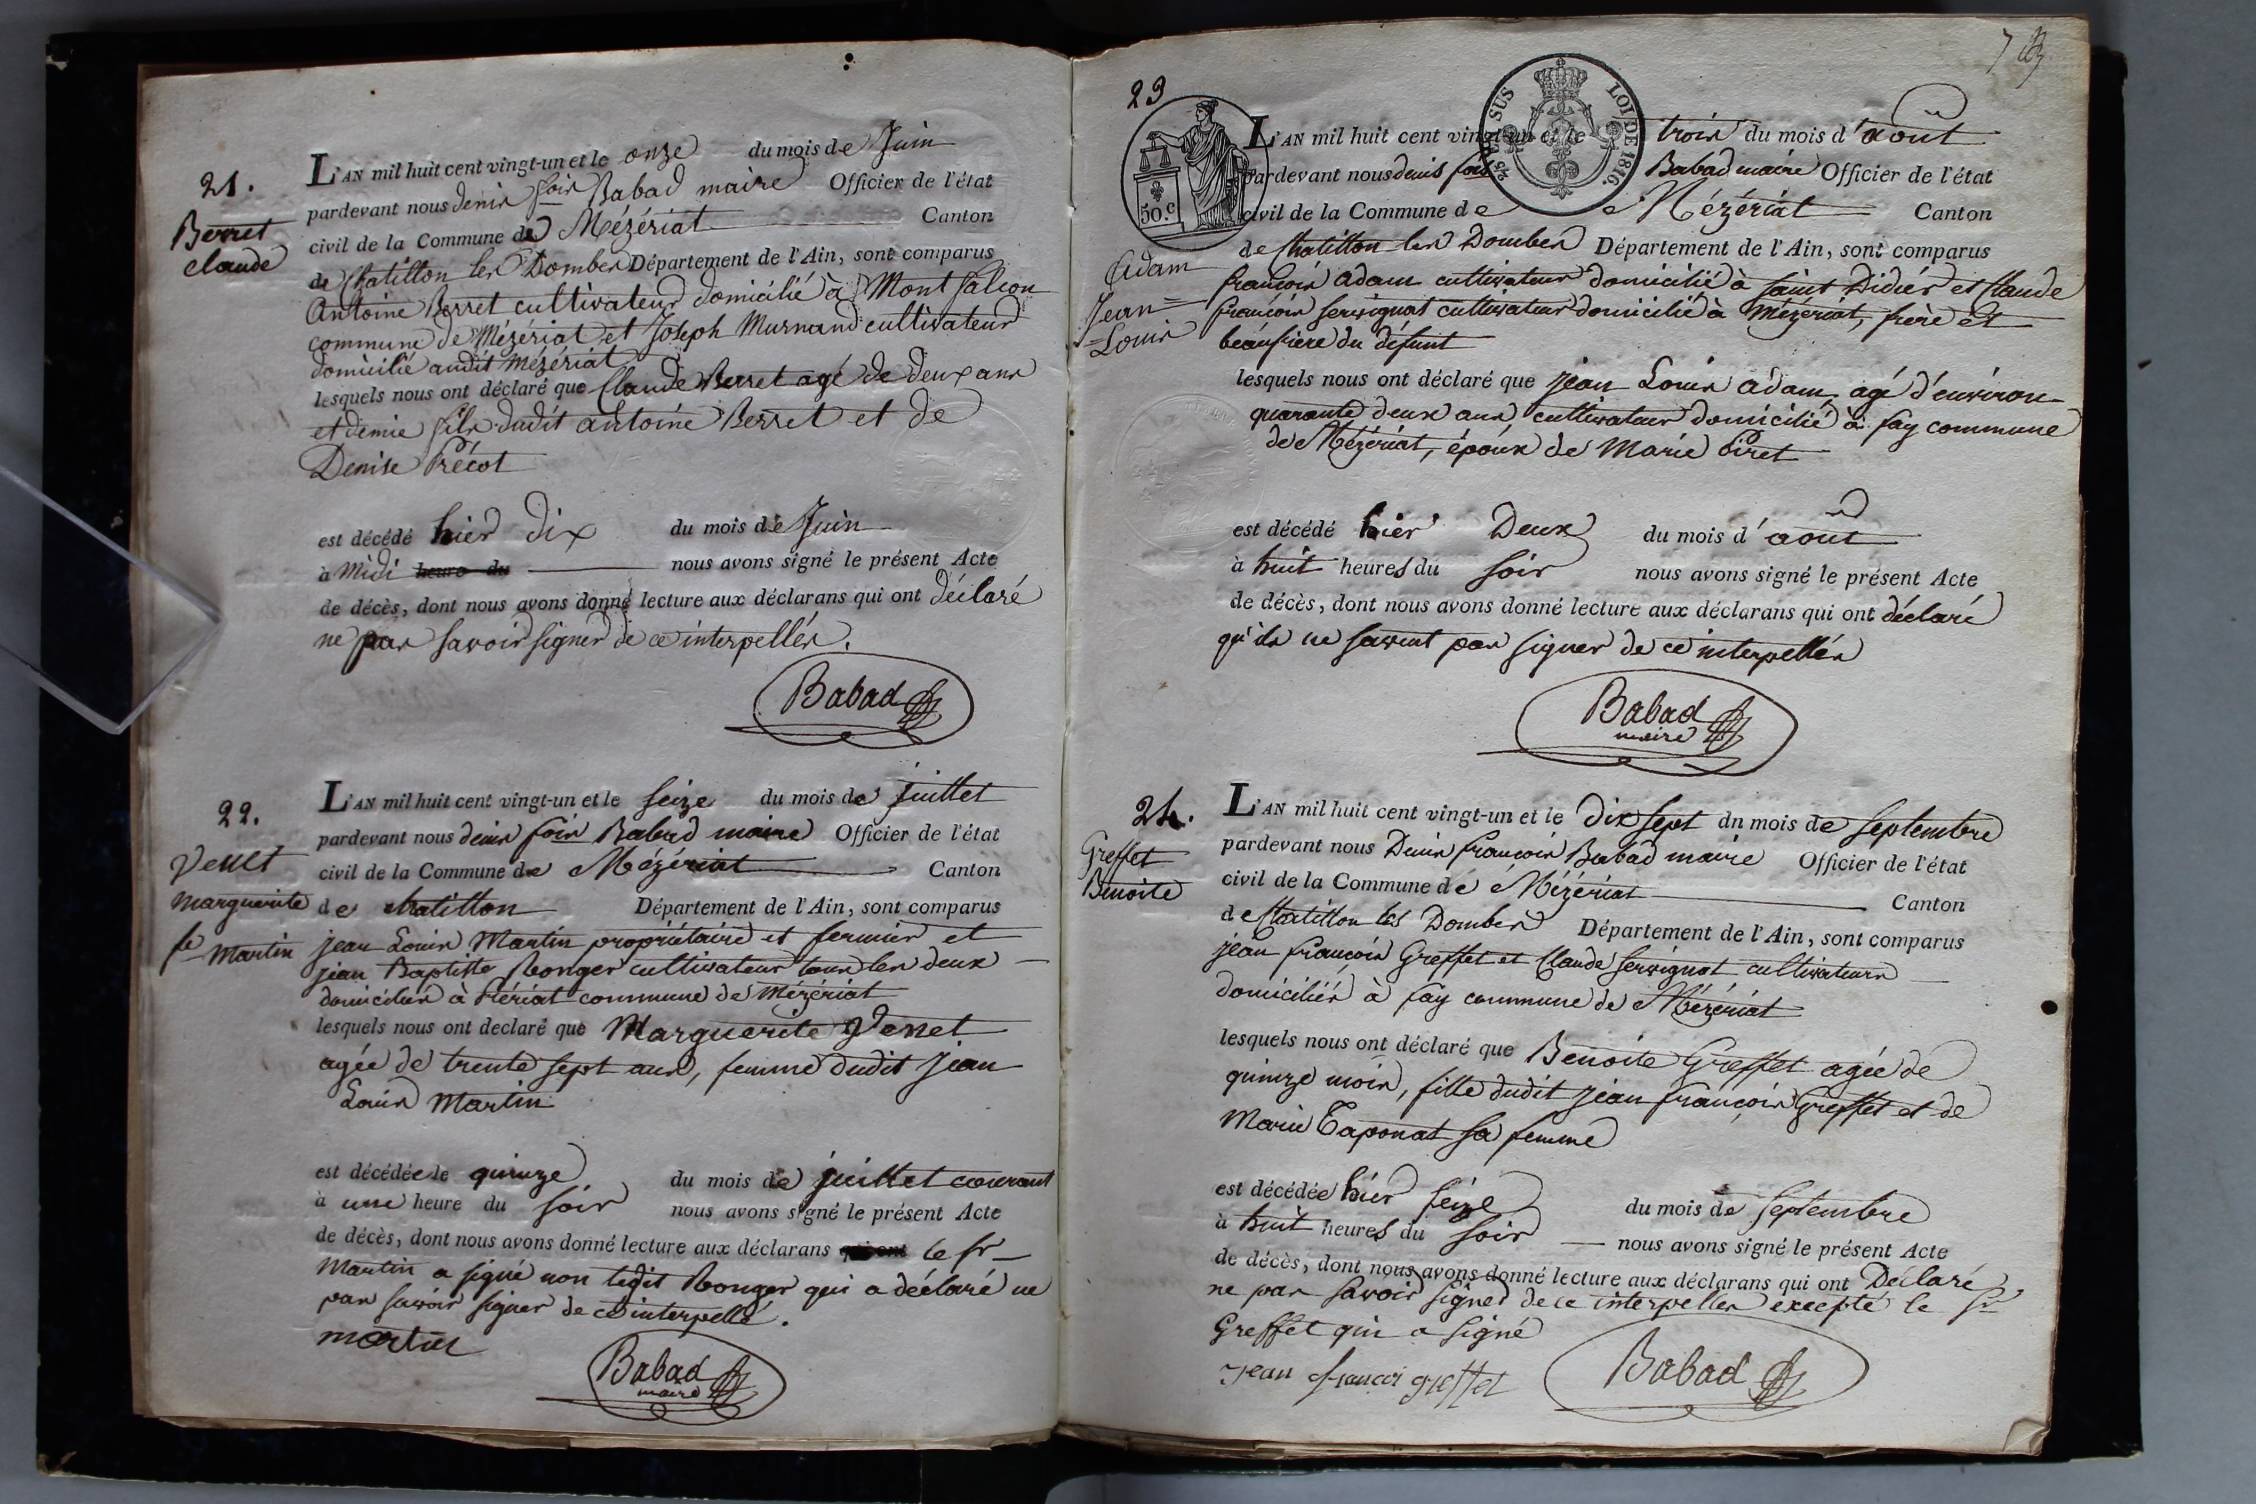 21.
Berret
claude
L'AN mil huit cent vingt-un et le onze du mois de Juin
pardevant nous denis foix Babad maire Officier de l'état
civil de la Commune de Mézériat Canton
de Chatillon les Dombes Département de l'Ain, sont comparus
Antoine Berret cultivateur domicilié à Mont falcon
commune de Mézériat et Joseph Murnand cultivateur
domicilié audit mézériat
lesquels nous ont déclaré que Claude Berret agé de deux ans
et demie fils dudit antoine Berret et de
Denise Précot
est décédé hier dix du mois de Juin
à Midi heure du nous avons signé le présent Acte
de décès, dont nous avons donné lecture aux déclarans qui ont déclaré
ne pas savoir signer de ce interpellés.
Babad
22.
Venet
marguerite
fe Martin
L'AN mil huit cent vingt-un et le seize du mois de juillet
pardevant nous denis foix Babad maire Officier de l'état
civil de la Commune de Mézériat Canton
de chatillon Département de l'Ain, sont comparus
jean Louis Martin propriétaire et fermier et
jean Baptiste Ronger cultivateur tous les deux
domiciliés à Périat commune de Mézériat
lesquels nous ont declaré que Marguerite Venet
agée de trente sept ans, femme dudit jean
Louis Martin
est décédée le quinze du mois de juillet courant
à une heure du soir nous avons signé le présent Acte
de décès, dont nous avons donné lecture aux déclarans qui ont le sr
Martin a signé non ledit Ronger qui a déclaré ne
pas savoir signer de ce interpellé.
martin
Babad
maire
7
23
SUS
LOI DE 1816.
50.c
Adam
Jean=
=Louis
L'AN mil huit cent vingt-un et le trois du mois d'août
pardevant nous denis foix Babad maire Officier de l'état
civil de la Commune de Mézériat Canton
de Chatillon les Dombes Département de l'Ain, sont comparus
françois adam cultivateur domicilié à saint Didier et Claude
françois servignat cultivateur domicilié à Mézériat, frère et
beaufrere du défunt
lesquels nous ont déclaré que jean Louis adam agé d'environ
quarante deux ans cultivateur domicilié à fay commune
de Mézériat, époux de Marie Piret
est décédé hier Deux du mois d'août
à huit heures du soir nous avons signé le présent Acte
de décès, dont nous avons donné lecture aux déclarans qui ont déclaré
qu'ils ne savent pas signer de ce interpellés
Babad
maire
24.
Greffet
Benoite
L'AN mil huit cent vingt-un et le dix sept du mois de septembre
pardevant nous Denis françois Babad maire Officier de l'état
civil de la Commune de Mézériat Canton
de Chatillon les Dombes Département de l'Ain, sont comparus
jean françois Greffet et Claude servignat cultivateurs
domiciliés à fay commune de Mézériat
lesquels nous ont déclaré que Benoite Greffet agée de
quinze mois, fille dudit jean françois Greffet et de
Marie Taponat sa femme
est décédée hier seize du mois de septembre
à huit heures du soir nous avons signé le présent Acte
de décès, dont nous avons donné lecture aux déclarans qui ont Déclaré
ne pas savoir signer de ce interpelles excepté le sr
Greffet qui a signé
jean francoi greffet
Babad